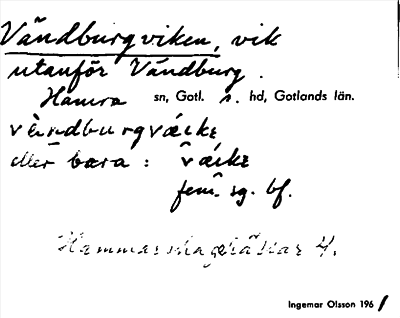 Vändburgviken, vik
utanför Vändburg.
Hamra sn, Gotl. s. hd, Gotlands län.
vä̀ndburgváikɛ
eller bara: váikɛ
fem. sg. bf.
4.
Ingemar Olsson 1961